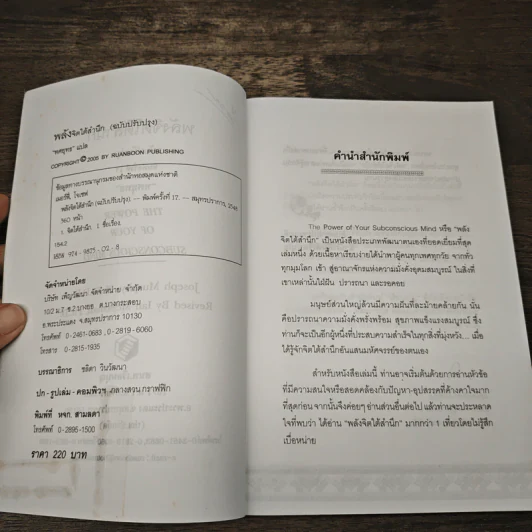 พลังจิตใต้สำนึก (ฉบับปรับปรุง)
"พศยุทธ" แปล
COPYRIGHT© 2005 BY RUANBOON PUBLISHING
ข้อมูลทางบรรณานุกรมของสำนักหอสมุดแห่งชาติ
เมอร์ฟี่, โจเซฟ
พลังจิตใต้สำนึก (ฉบับปรับปรุง). -- พิมพ์ครั้งที่ 17. -- สมุทรปราการ,
หน้า
1. จิตใต้สำนึก. I. ชื่อเรื่อง.
154.2
ISBN 974 - 9875
จัดจำหน่ายโดย
บริษัท เพ็ญวัฒนา จัดจำหน่าย จำกัด
10/2 ม.7 ซ.2 บางยอ ต.บางกระสอบ
อ.พระประแดง จ.สมุทรปราการ 10130
โทรศัพท์ 0-2461-0683, 0-2819-6060
โทรสาร 0-2815-1935
บรรณาธิการ ชลิดา วีนวัฒนา
ปก - รูปเล่ม - คอมพิวฯ กลางสวน กราฟฟิก
พิมพ์ที่ หจก. สามลดา
โทรศัพท์ 0-2895-1500
ราคา 220 บาท
คำนำสำนักพิมพ์
The Power of Your Subconscious Mind หรือ "พลัง
จิตใต้สำนึก" เป็นหนังสือประเภทพัฒนาตนเองที่ยอดเยี่ยมที่สุด
เล่มหนึ่ง ด้วยเนื้อหาเรียบง่ายได้นำพาผู้คนทุกเพศทุกวัย จากทั่ว
ทุกมุมโลก เข้า สู่อาณาจักรแห่งความมั่งคั่งอุดมสมบูรณ์ ในสิ่งที่
เขาเหล่านั้นใฝ่ฝัน ปรารถนา และรอคอย
มนุษย์ส่วนใหญ่ล้วนมีความฝันที่ละม้ายคล้ายกัน นั่น
คือปรารถนาความมั่งคั่งพรั่งพร้อม สุขภาพแข็งแรงสมบูรณ์ ซึ่ง
ท่านก็จะเป็นอีกผู้หนึ่งที่ประสบความสำเร็จในทุกสิ่งที่มุ่งหวัง... เมื่อ
ได้รู้จักจิตใต้สำนึกอันแสนมหัศจรรย์ของตนเอง
สำหรับหนังสือเล่มนี้ ท่านอาจเริ่มต้นด้วยการอ่านหัวข้อ
ที่มีความสนใจหรือสอดคล้องกับปัญหา-อุปสรรคที่ค้างคาใจมาก
ที่สุดก่อน จากนั้นจึงค่อยๆ อ่านส่วนอื่นต่อไป แล้วท่านจะประหลาด
ใจที่พบว่า ได้อ่าน "พลังใต้สำนึก" มากกว่า 1 เที่ยวโดยไม่รู้สึก
เบื่อหน่าย